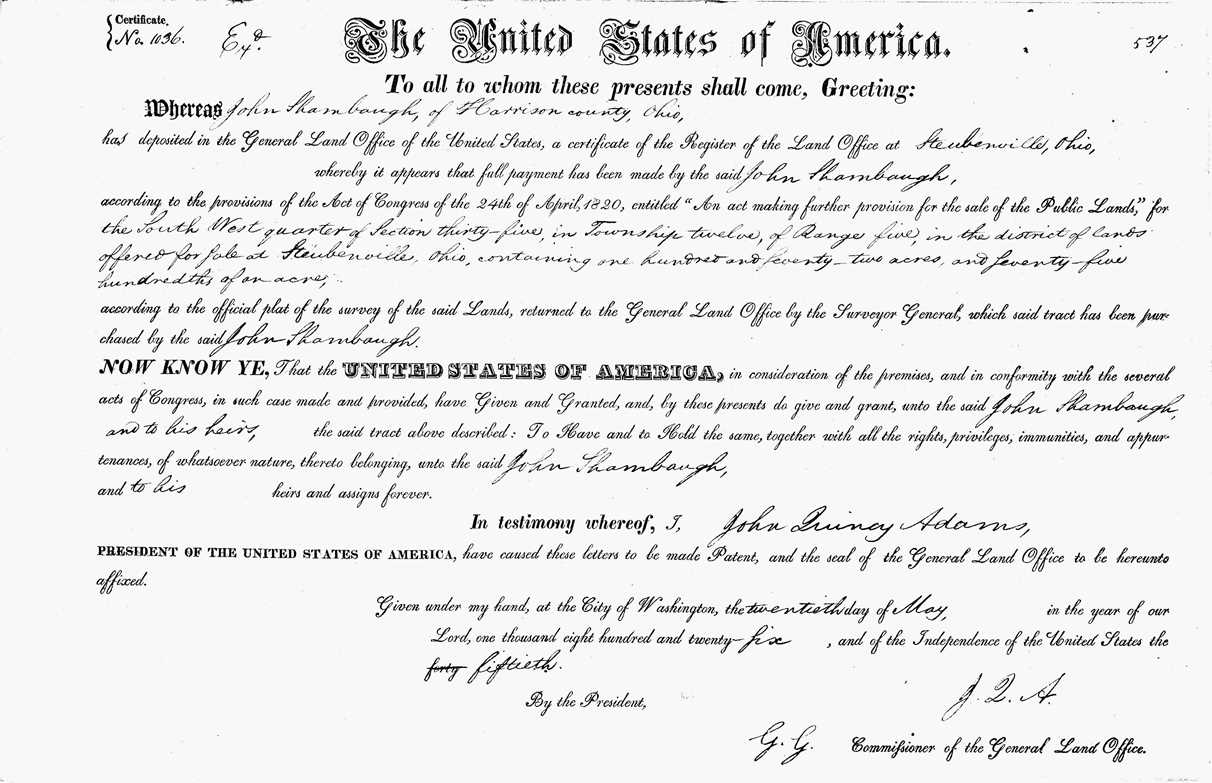 Certificate,
No. 1036.
Exd.
The United States of America.
537
To all to whom these presents shall come, Greeting:
Whereas John Shambaugh, of Harrison county, Ohio,
has deposited in the General Land Office of the United States, a certificate of the Register of the Land Office at Steubenville, Ohio,
whereby it appears that full payment has been made by the said John Shambaugh,
according to the provisions of the Act of Congress of the 24th of April, 1820, entitled "An act making further provision for the sale of the Public Lands," for
the South West quarter of Section thirty-five, in Township twelve, of Range five, in the district of lands
offered for sale at Steubenville, Ohio, containing one hundred and seventy-two acres, and seventy-five
hundredths of an acre,
according to the official plat of the survey of the said Lands, returned to the General Land Office by the Surveyor General, which said tract has been pur-
chased by the said John Shambaugh.
NOW KNOW YE, That the UNITED STATES OF AMERICA, in consideration of the premises, and in conformity with the several
acts of Congress, in such case made and provided, have Given and Granted, and, by these presents do give and grant, unto the said John Shambaugh,
and to his heirs, the said tract above described: To Have and to Hold the same, together with all the rights, privileges, immunities, and appur-
tenances, of whatsoever nature, thereto belonging, unto the said John Shambaugh,
and to his heirs and assigns forever.
In testimony whereof, I, John Quincy Adams,
PRESIDENT OF THE UNITED STATES OF AMERICA, have caused these letters to be made Patent, and the seal of the General Land Office to be hereunto
affixed.
Given under my hand, at the City of Washington, the twentieth day of May, in the year of our
Lord, one thousand eight hundred and twenty-six, and of the Independence of the United States the
forty fiftieth.
By the President,
J. Q. A.
G. G. Commissioner of the General Land Office.